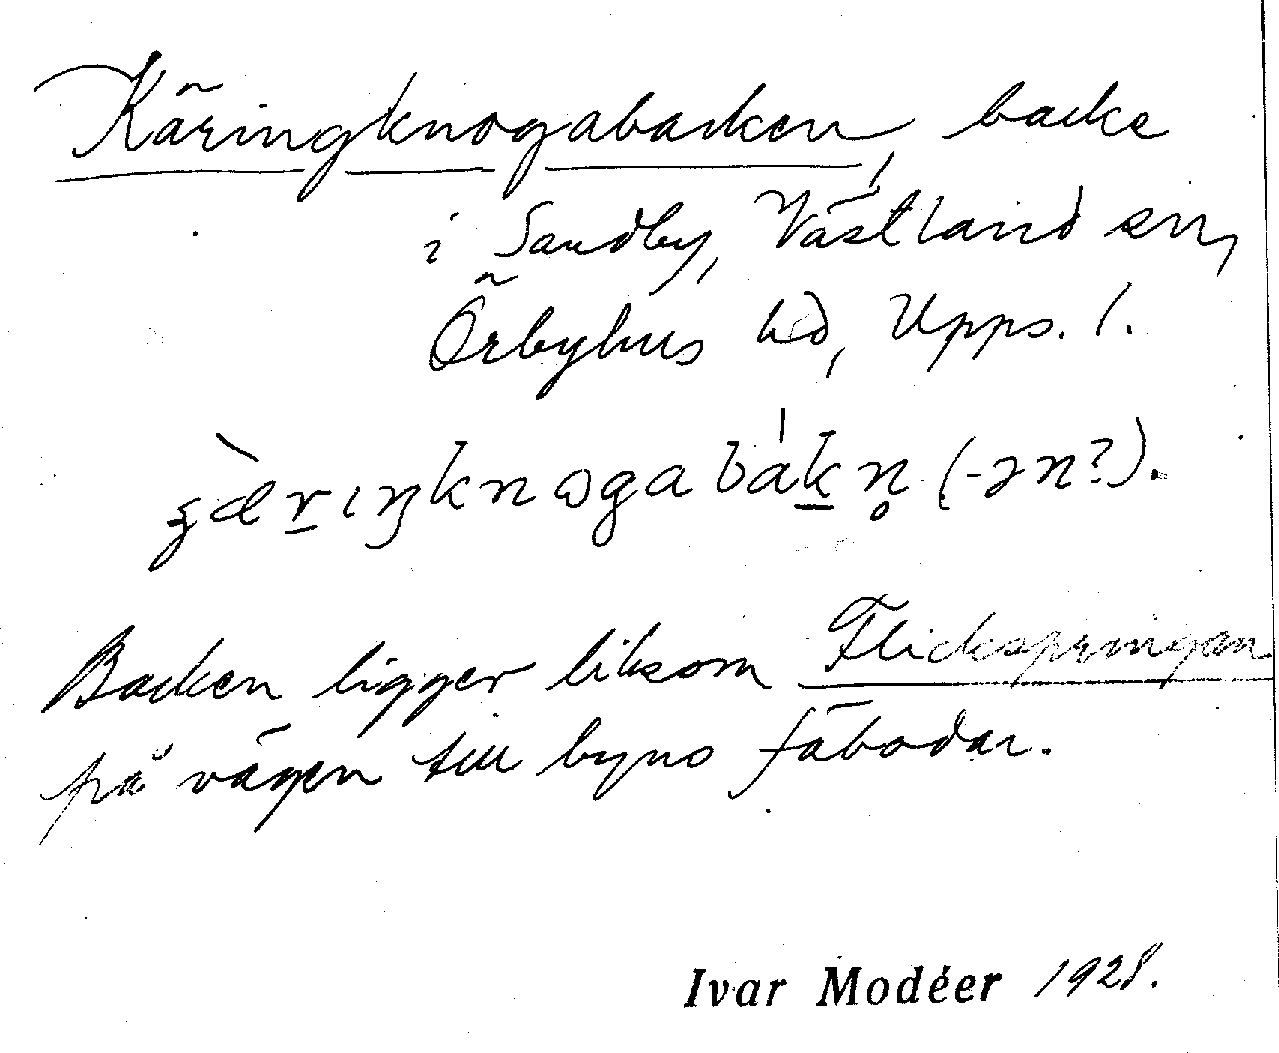 Käringknogabacken, backe
i Sandby, Västland sn,
Örbyhus hd, Upps. l.
ʒæ̀r̲ıŋknɷgabák̲n̥ (-ən?).
Backen ligger liksom Flickspringan
på vägen till byns fäbodar.
Ivar Modéer 1928.